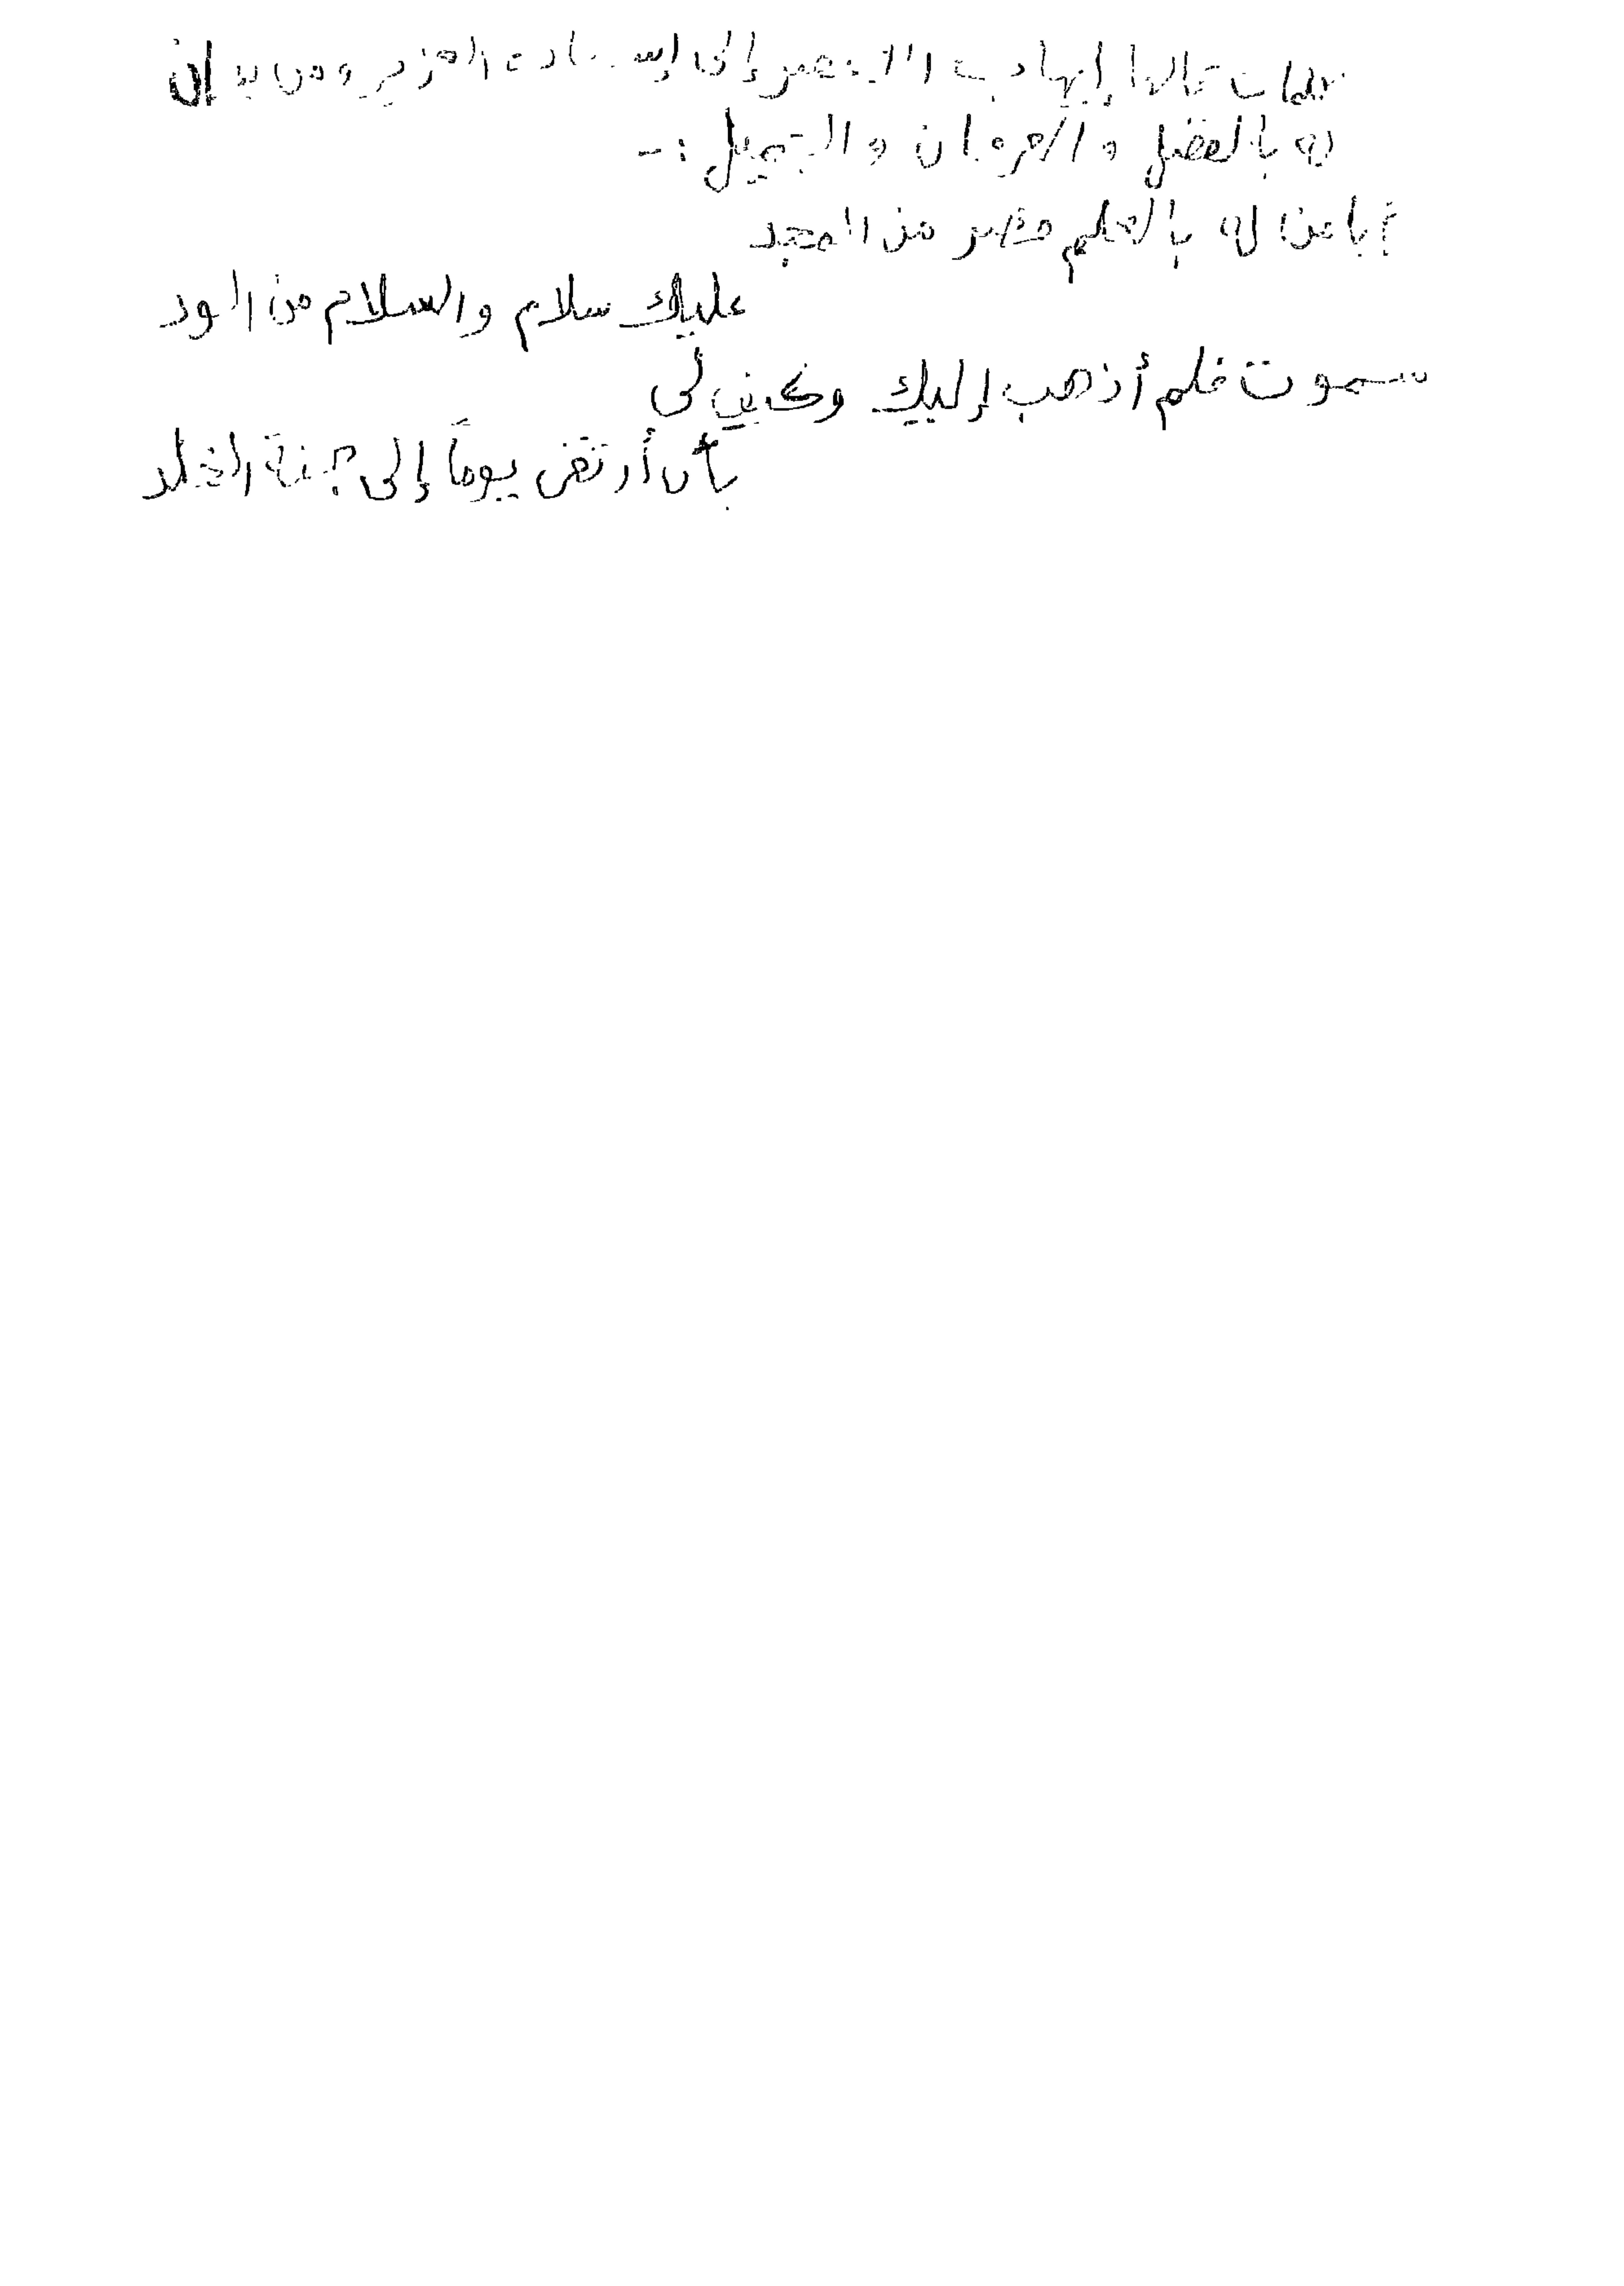 كلمات قالها إيهاب الأزهر إلى إستاذه العزيز ومن يدان
له بالفضل والعرفان والتبجيل :-
أيا من له بالعلم قصر من المجد
عليك سلام والسلام من الود
سموت فلم أذهب إليك وكيف لى
بأن أرتقى يوماً إلى جنة الخلد